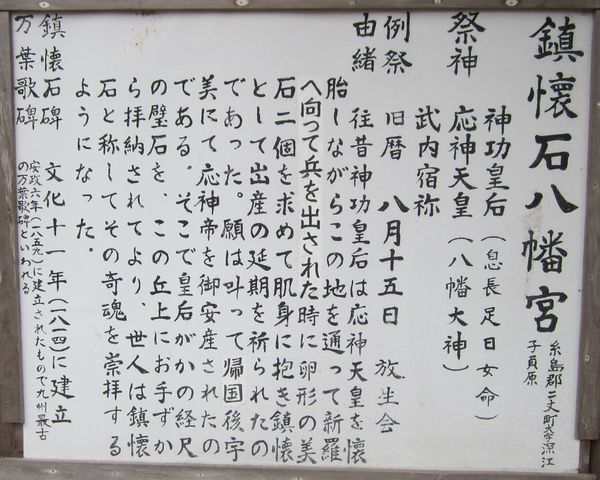 鎮懐石八幡宮
糸島郡二丈町大字深江
子負原
祭神
神功皇后(息長足日女命)
応神天皇(八幡大神)
武内宿祢
例祭 旧暦 八月十五日 放生会
由緒
往昔神功皇后は応神天皇を懐
胎しながらこの地を通って新羅
へ向って兵を出された時に卵形の美
石二個を求めて肌身に抱き鎮懐
として出産の延期を祈られたの
であった。願は叶って帰国後宇
美にて応神帝を御安産されたの
である。そこで皇后がかの経尺
の璧石を、この丘上にお手ずか
ら拝納されてより、世人は鎮懐
石と称してその奇魂を崇拝する
ようになった。
鎮懐石碑 文化十一年(一八一四)に建立
万葉歌碑 安政六年(一八五九)に建立されたもので九州最古
の万葉歌碑といわれる